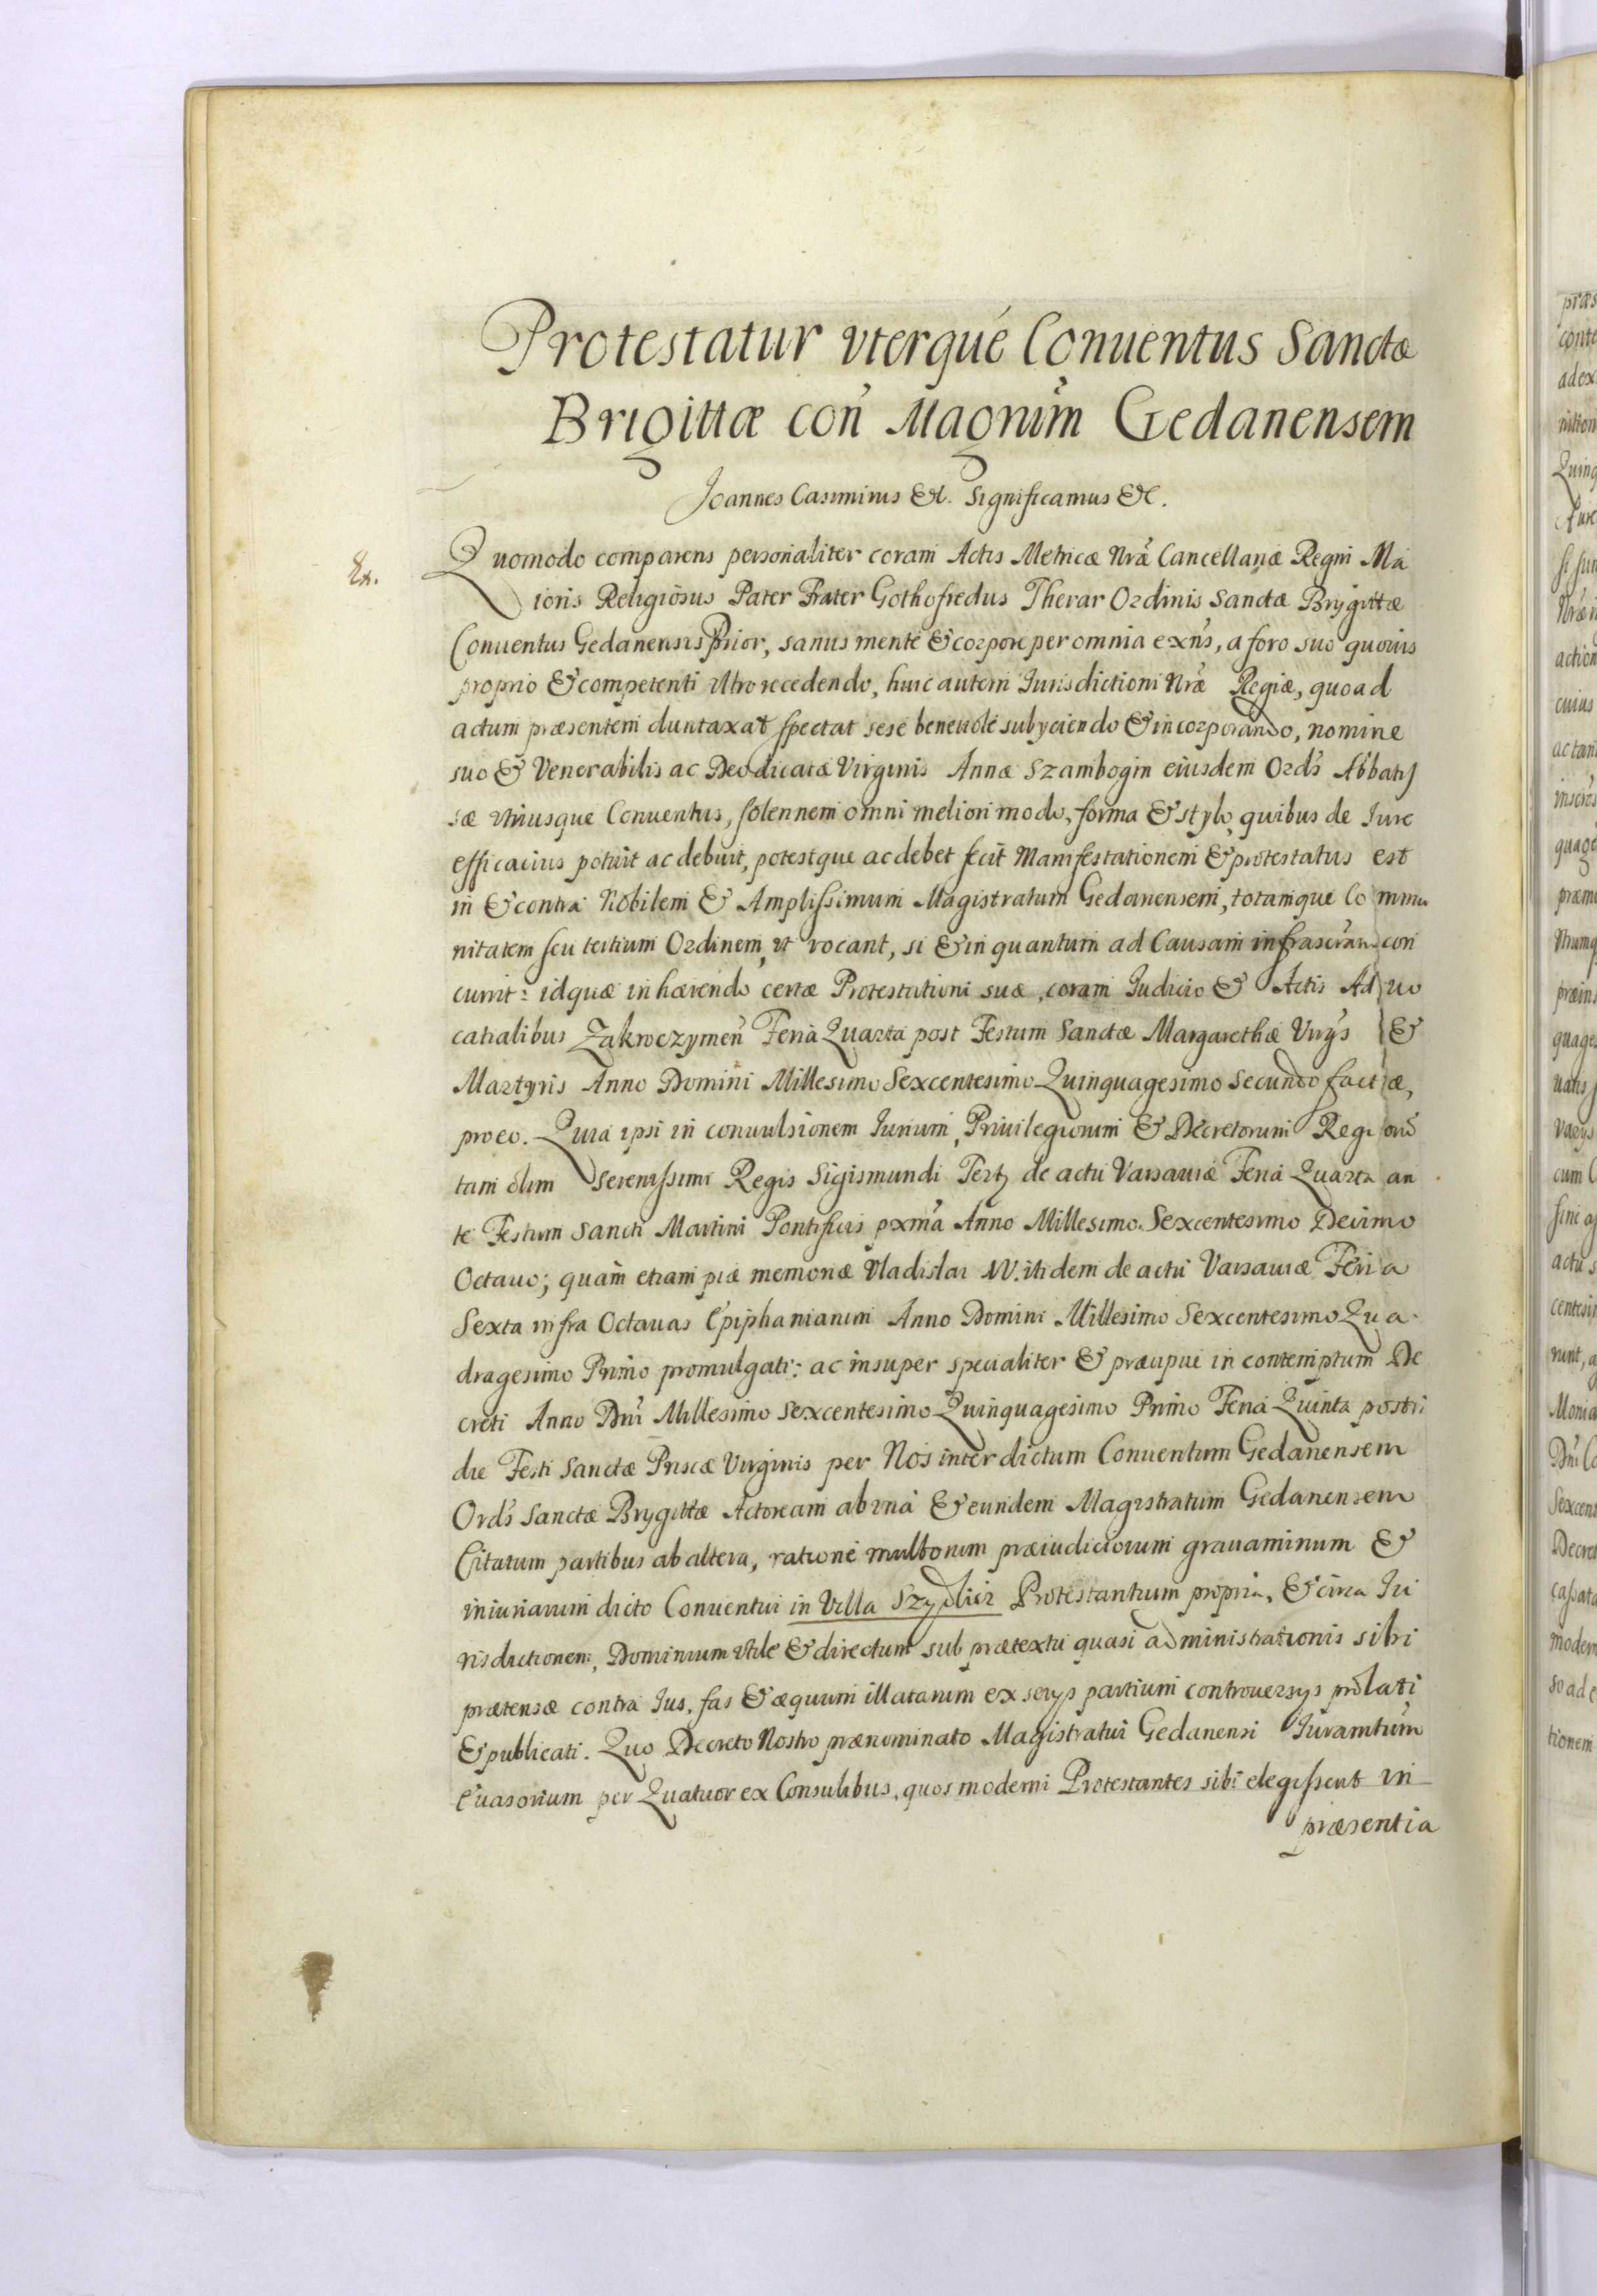 Protestatur vterque Conuentus Sanctæ
Brigittæ con Magrum Gedanensem
Joannes Casimirus &c. Significamus &c.
Ex.
Quomodo comparens personaliter coram Actis Metricæ Nræ Cancellariæ Regni Ma
ioris Religiosus Pater Frater Gothofredus Therar Ordinis Sanctæ Brygittæ
Conuentus Gedanensis Prior, sanus mente & corpore per omnia exns, a foro suo quouis
proprio & competenti vltro recedendo, huic autem Jurisdictioni Nræ Regiæ, quoad
actum præsentem duntaxat spectat sese beneuole subyciendo & incorporando, nomine
suo & Venerabilis ac Deodicatæ Virginis Annæ Szambogin eiusdem Ords Abbatis
sæ vtriusque Conuentus, solennem omni meliori modo, forma & stylo, quibus de Jure
efficacius potuit ac debuit, potestque ac debet fecit Manifestationem & protestatus est
in & contra Nobilem & Amplissimum Magistratum Gedanensem, totamque Commu
nitatem seu tertium Ordinem, vt vocant, si & in quantum ad Causam infrascram con
currit: idquæ inhærendo certæ Protestationi suæ, coram Judicio & Actis Aduo
catialibus Zakroczymen Feria Quarta post Festum Sanctæ Margarethæ Virgs &
Martyris Anno Domini Millesimo Sexcentesimo Quinquagesimo Secundo factæ,
pro eo. Quia ipsi in conuulsionem Jurium, Privilegiorum & Decretorum Regiorũ
tam olim Serenissimi Regis Sigismundi Tertÿ de actu Varsauiæ Feria Quarta an
te Festum Sancti Martini Pontificis pxma Anno Millesimo Sexcentesimo Decimo
Octauo; quam etiam piæ memoriæ Vladislai IV. itidem de actu Varsauiæ Feria
Sexta infra Octauas Epiphaniarum Anno Domini Millesimo Sexcentesimo Qua
dragesimo Primo promulgati: ac insuper specialiter & præcipue in contemptum De
creti Anno Dni Millesimo Sexcentesimo Quinquagesimo Primo Feria Quinta postri
die Festi Sanctæ Priscæ Virginis per Nos inter dictum Conuentum Gedanensem
Ords Sanctæ Brygittæ Actoream ab vna & eundem Magistratum Gedanensem
Citatum partibus ab altera, ratione multorum præiudiciorum grauaminum &
iniuriarum dicto Conuentui in Villa Szydlicz Protestantium propria, & circa Ju
risdictionem, Dominium vtile & directum sub prætextu quasi administrationis sibi
prætensæ contra Jus, fas & æquum illatarum ex serÿs partium controuersÿs prolati
& publicati. Quo Decreto Nostro prænominato Magistratui Gedanensi Juramtum
Euasorium per Quatuor ex Consulibus, quos moderni Protestantes sibi elegissent in
præsentia